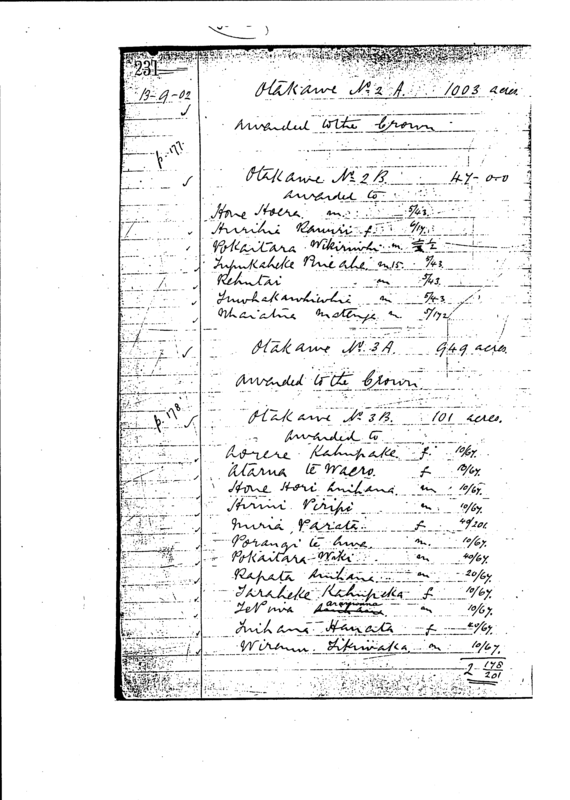 231
13-9-02
Otakawe No 2 A. 1003 acres
Awarded to the Crown
p. 177.
Otakawe No 2 B. 47-0-0
awarded to
Hone Hoera m. 5/43
Hurihia Rawiri f.
Pokaitara m
m 15 5/43
Rehutai m 5/43
m 5/43
Matenga m 5/172
Otakawe No 3 A. 949 acres.
Awarded to the Crown.
p. 178
Otakawe No 3 B. 101 acres.
awarded to
Aorere Kahupake f. 10/67.
Atarua te Waero. f 10/67.
Hone Hori Anihana m 10/67.
Hirini Piripi m. 10/67.
Miria Parata f 40/201
Porangi te Awe. m. 10/67.
Pokaitara Wiki m 40/67.
Rapata Anihana m 20/67.
Taraheke Kahupeka f 10/67.
m 10/67.
Hanata f 20/67.
Wiremu m 10/67.
2 178/201